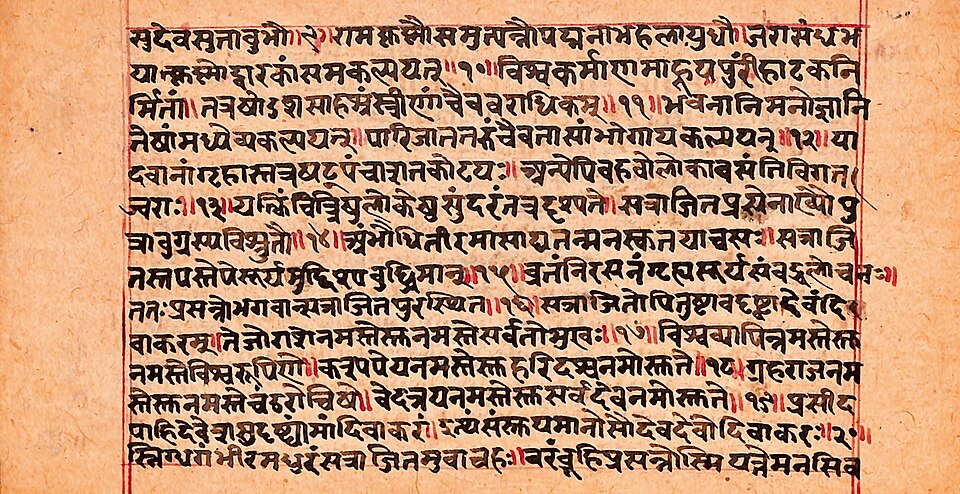 सुदेवसुतावुभौ॥९॥रामकृष्णौसमुत्पन्नौपद्मनाभहलायुधौ।जरासंधभ
यात्कृष्णोद्वारकांसमकल्पयत्॥१०॥विश्वकर्माणमाहूयपुरींहाटकनि
र्मितां।तत्रषोडशसाहस्रंस्त्रीणांचैववराधिकम्॥११॥भवनानिमनोज्ञानि
तेषांमध्येव्यकल्पयत्।पारिजाततरुंचैवतासांभोगायकल्पयत्॥१२॥या
दवानांगृहास्तत्रषट्पंचाशतकोटयः॥अन्येपिबहवोलोकावसंतिविगत
ज्वराः॥१३॥यत्किंचित्रिषुलोकेषुसुंदरंतत्रदृश्यते।सत्राजितप्रसेनाख्यौपु
त्रावुग्रस्यविश्रुतौ॥१४॥अंभोधितीरमासाद्यतन्मनस्कतयाचसः।सत्राजि
तस्तपस्तेपेसूर्यमुद्दिश्यबुद्धिमान्॥१५॥व्रतंनिरसनंगृह्यसूर्यसंबद्धलोचनः॥
ततःप्रसन्नोभगवान्सत्राजितपुरःस्थितः॥१६॥सत्राजितोपितुष्टावदृष्ट्वादेवंदि
वाकरम्।तेजोराशेनमस्तेस्तुनमस्तेसर्वतोमुखः॥१७॥विश्वव्यापिन्नमस्तेस्तु
नमस्तेविश्वरूपिणे॥काश्यपेयनमस्तेस्तुहरिदश्वनमोस्तुते॥१८॥ग्रहराजनम
स्तेस्तुनमस्तेचंडरोचिषे॥वेदत्रयनमस्तेस्तुसर्वदेवनमोस्तुते॥१९॥प्रसीद
पाहिदेवेशसुदृष्ट्यामांदिवाकर।इत्थंसंस्तूयमानोसौदेवदेवोदिवाकरः॥२०॥
स्निग्धगंभीरमधुरंसत्राजितमुवाचह॥वरंब्रूहिप्रसन्नोस्मियत्तेमनसिव